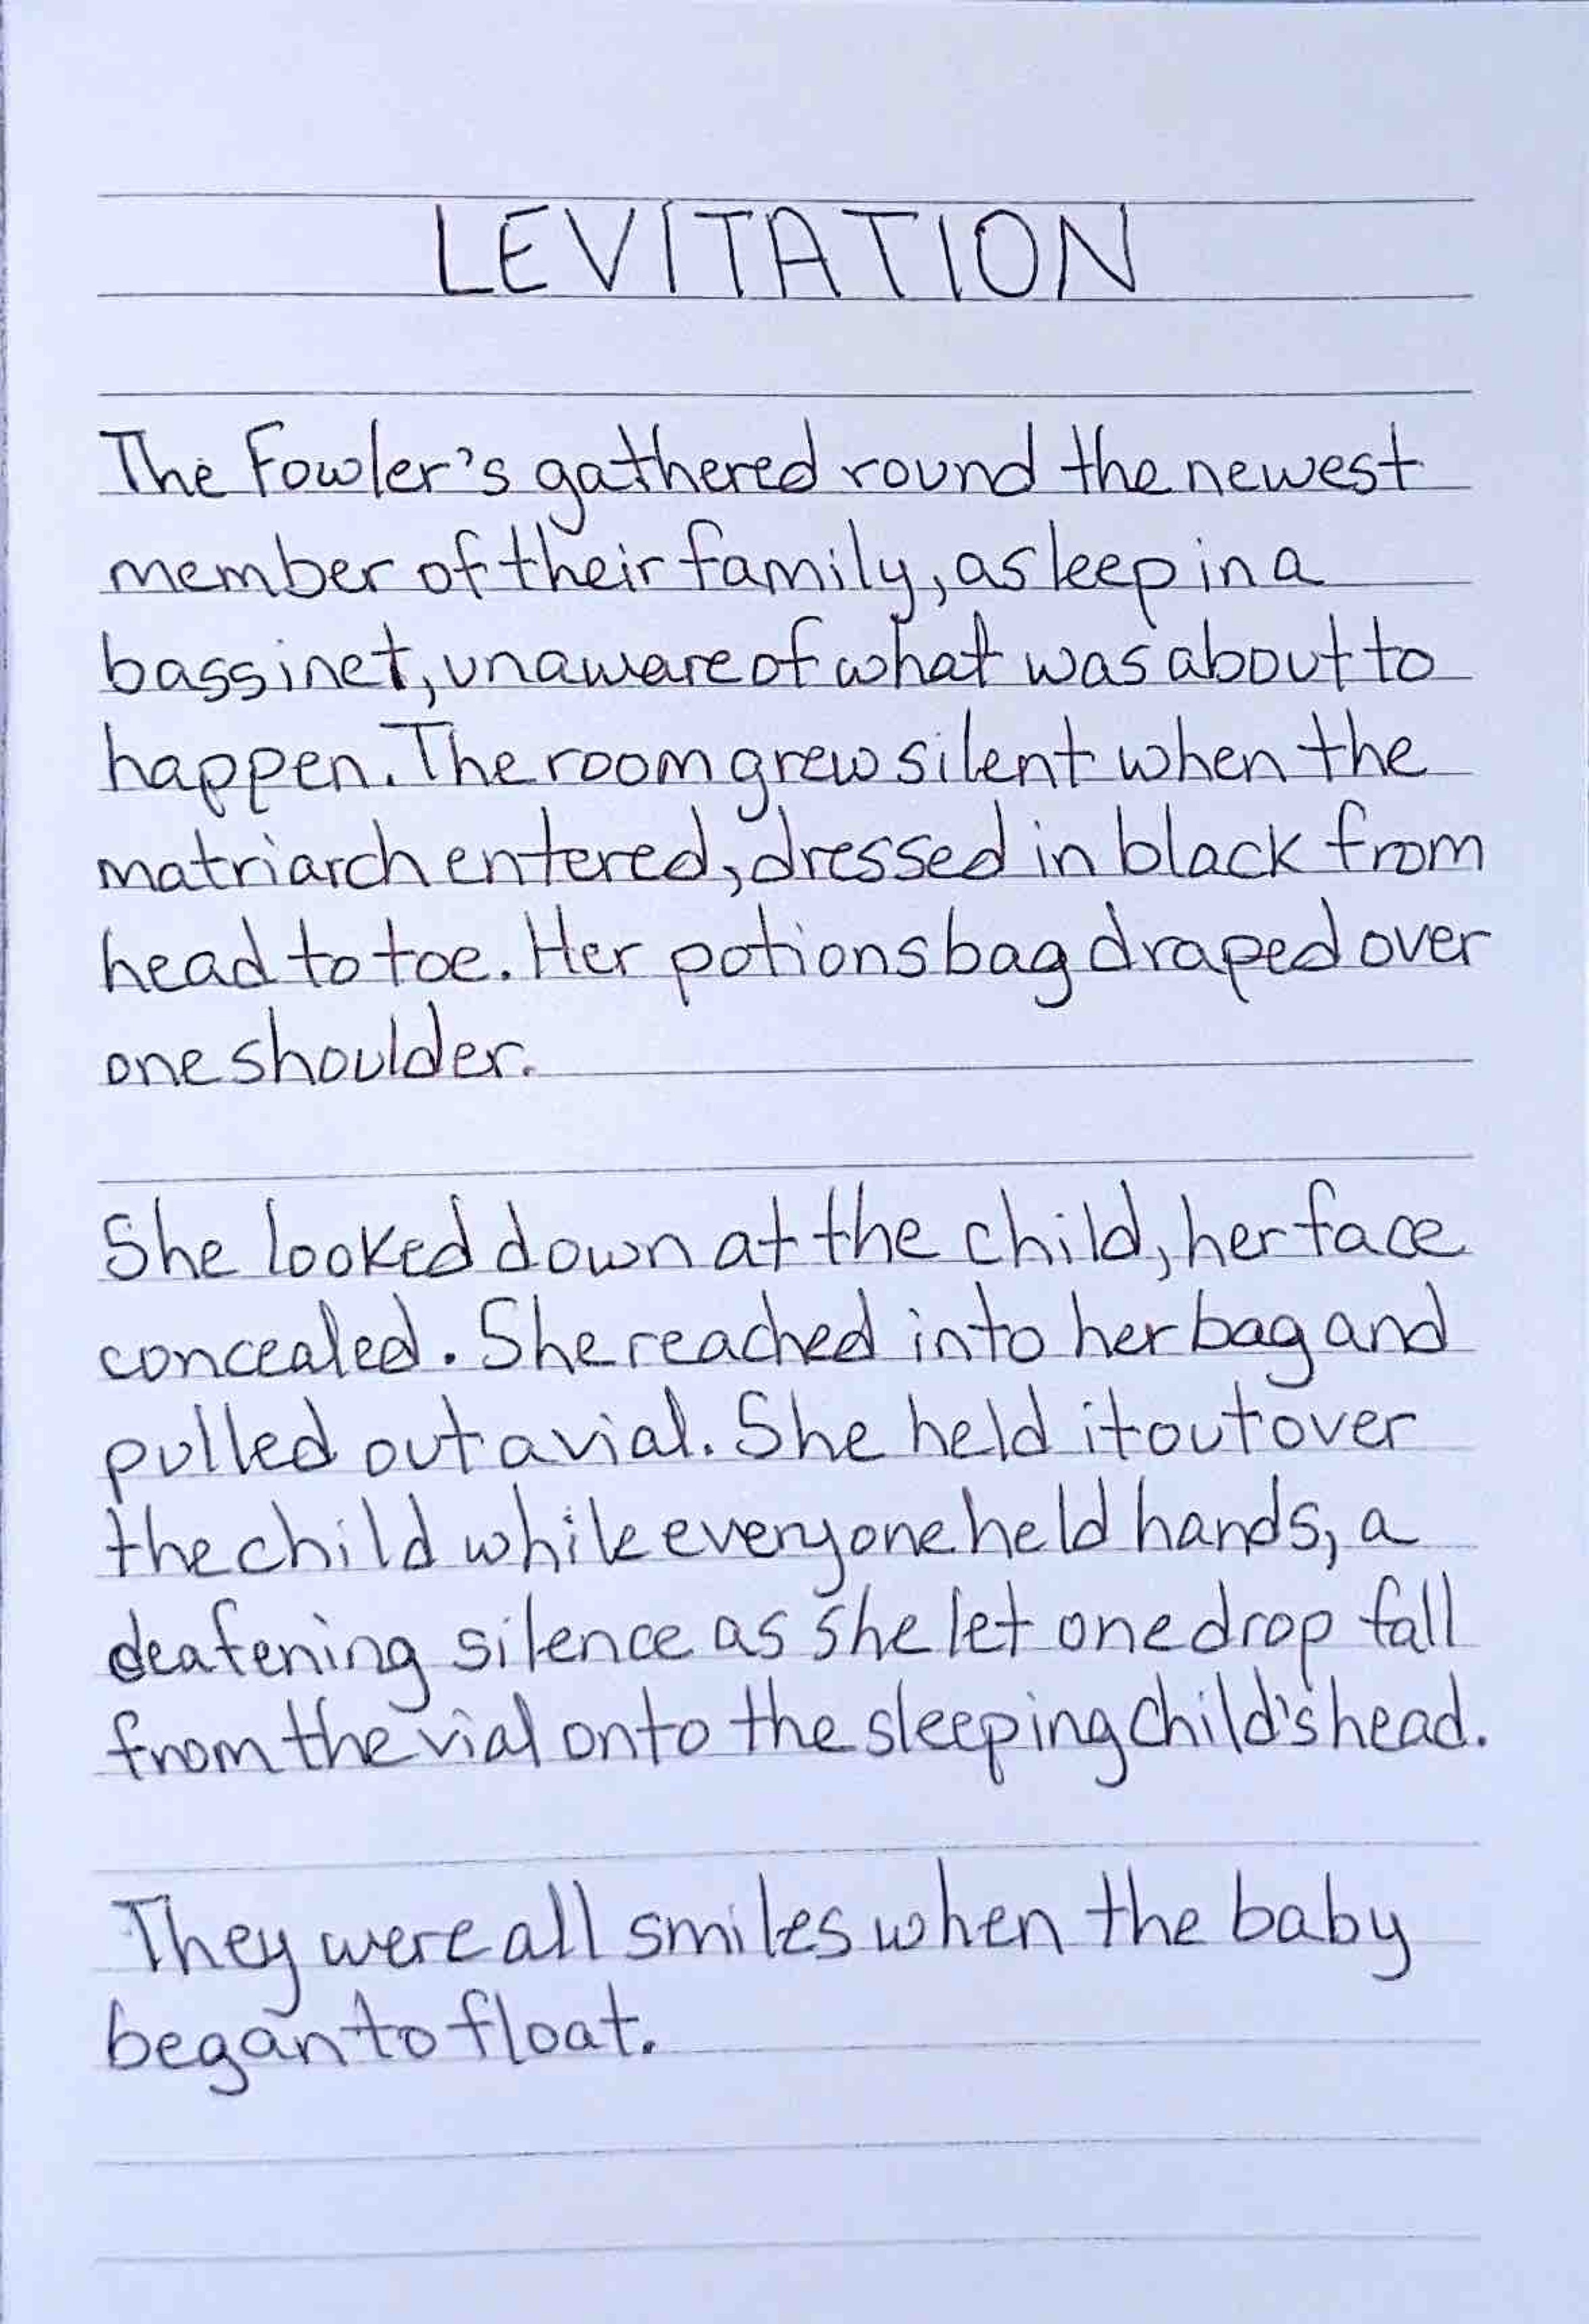 LEVITATION
The Fowler's gathered round the newest
member of their family, asleep in a
bassinet, unaware of what was about to
happen. The room grew silent when the
matriarch entered, dressed in black from
head to toe. Her potions bag draped over
one shoulder.
She looked down at the child, her face
concealed. She reached into her bag and
pulled out a vial. She held it out over
the child while everyone held hands, a
deafening silence as she let one drop fall
from the vial onto the sleeping child's head.
They were all smiles when the baby
began to float.